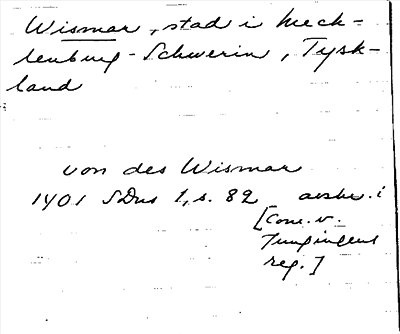 Wismar, stad i Meck-
lenburg-Schwerin, Tysk-
land
von des Wismar
1401 SDns 1, s. 82 avskr. i
[Conr. v.
Jungingens
reg.]